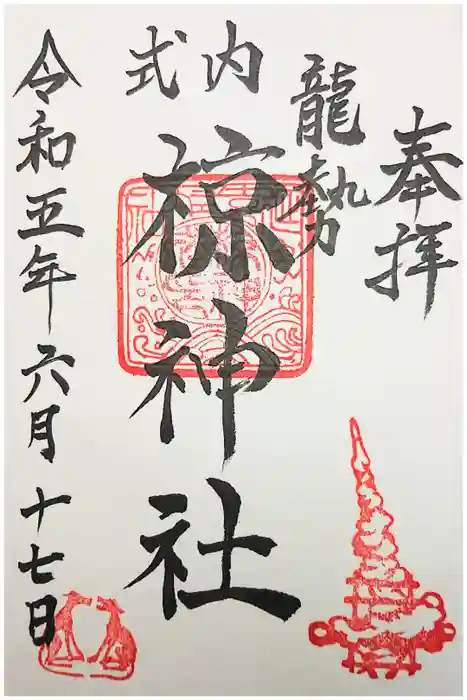 奉拝
龍勢
式内
椋神社
令和五年六月十七日